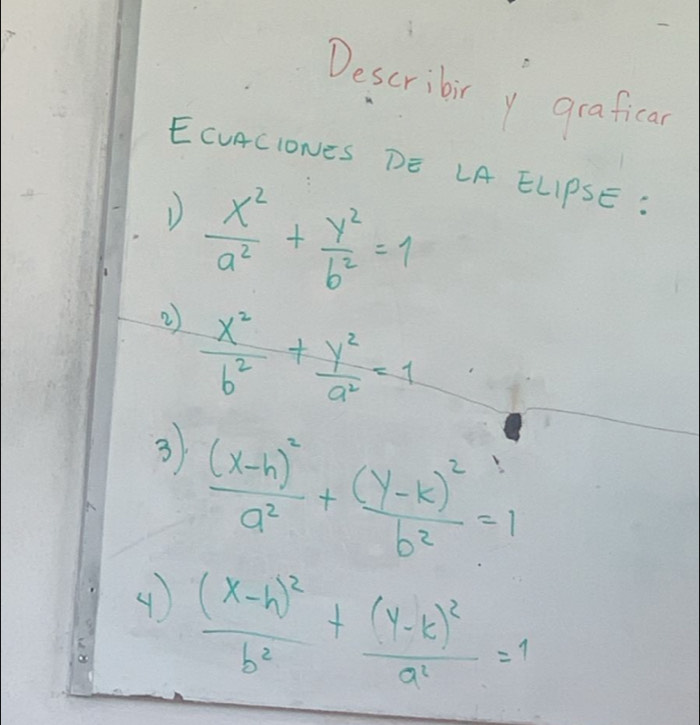 Describir y graficar
ECUACIONES DE LA ELIPSE:
1) x²/a² + y²/b² = 1
2) x²/b² + y²/a² = 1
3) (x-h)²/a² + (y-k)²/b² = 1
4) (x-h)²/b² + (y-k)²/a² = 1